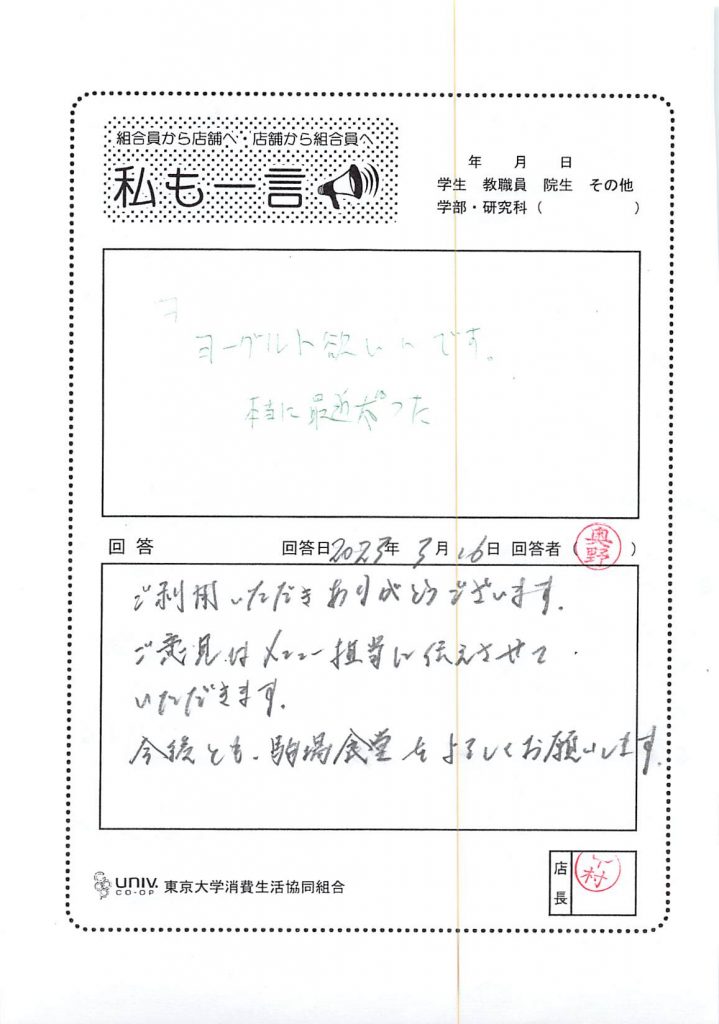 組合員から店舗へ・店舗から組合員へ
私も一言
年 月 日
学生 教職員 院生 その他
学部・研究科 ( )
ヨ
ヨーグルト欲しいです。
本当に最近太った
回答 回答日2023年 3月16日 回答者 (奥野)
ご利用いただきありがとうございます。
ご意見はメニュー担当に伝えさせて
いただきます。
今後とも、駒場食堂をよろしくお願いします。
UNIV. CO-OP 東京大学消費生活協同組合
店長
村